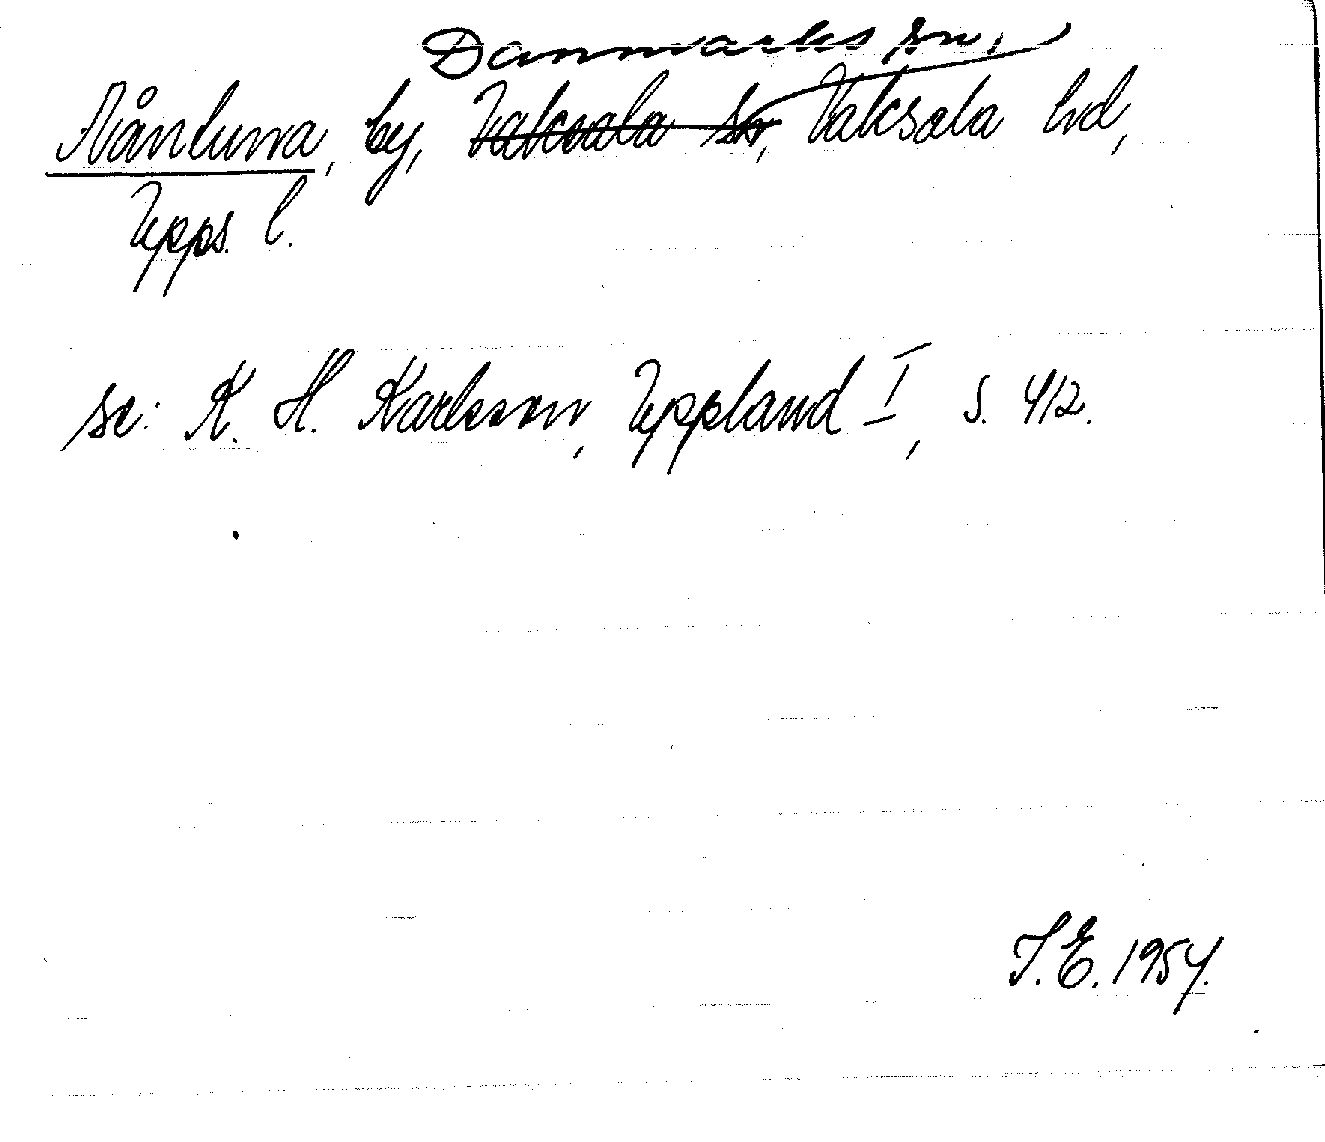 Danmarks sn,
Nånluna, by, Vaksala sn, Vaksala hd,
Upps. l.
se: K. H. Karlsson, Uppland I, s. 412.
S.E. 1954.